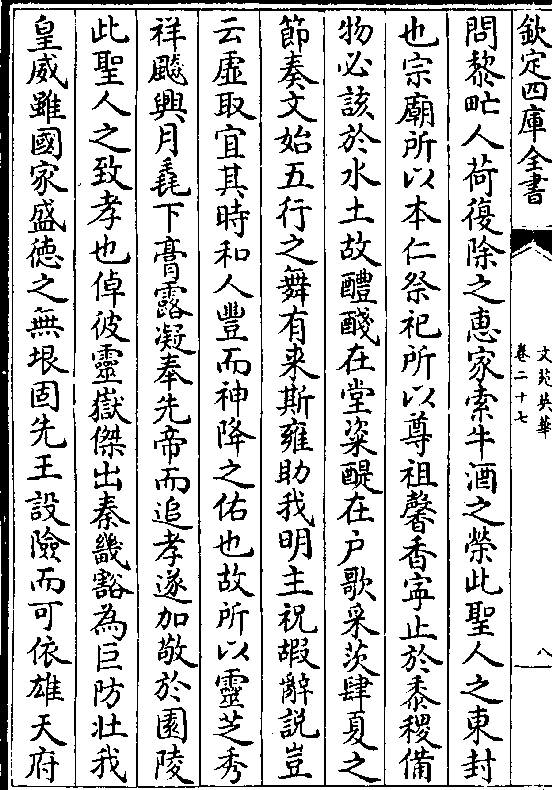 欽定四庫全書
文苑英華
卷二十七
八
問黎甿人荷復除之惠家索牛酒之榮此聖人之東封
也宗廟所以本仁祭祀所以尊祖馨香寧止於黍稷備
物必該於水土故醴醆在堂粢醍在户歌采茨肆夏之
節奏文始五行之舞有来斯雍助我明主祝嘏辭説豈
云虚取宜其時和人豐而神降之佑也故所以靈芝秀
祥飇興月毳下膏露凝奉先帝而追孝遂加敬於園陵
此聖人之致孝也倬彼靈嶽傑出秦畿豁為巨防壯我
皇威雖國家盛徳之無垠固先王設險而可依雄天府